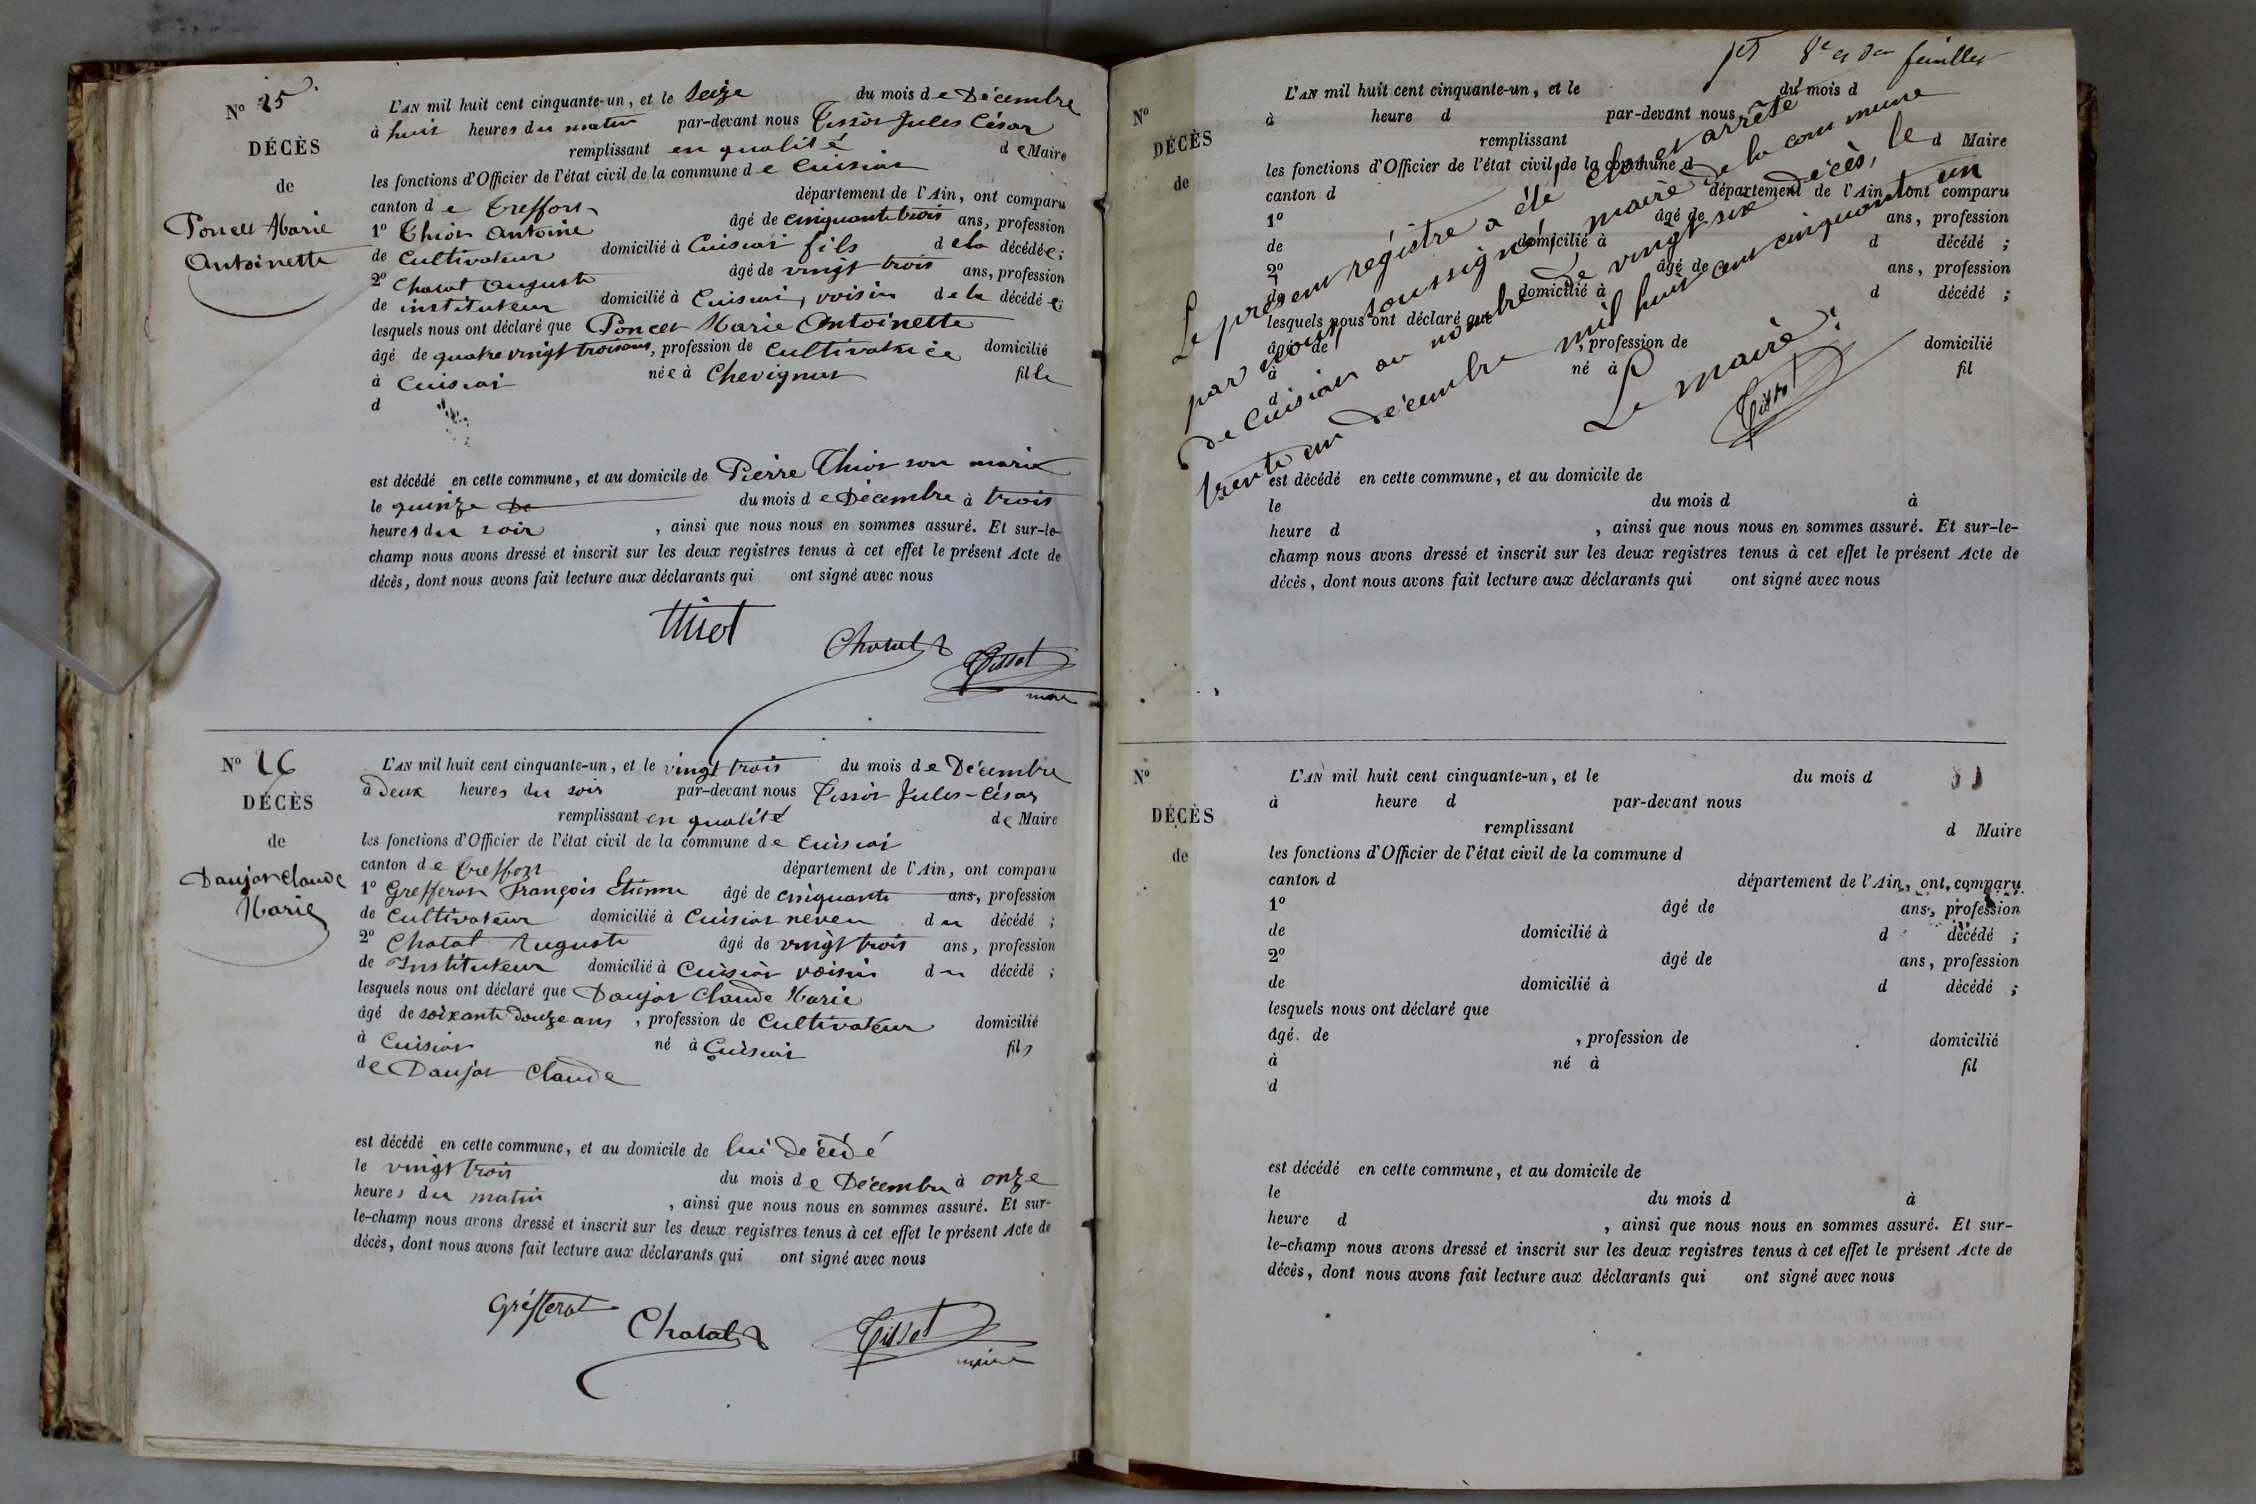 N° 25
DÉCÈS
de
Poncet Marie
Antoinette
L'AN mil huit cent cinquante-un, et le seize du mois de Décembre
à huit heures du matin par-devant nous Tissot Jules César
remplissant en qualité de Maire
les fonctions d'Officier de l'état civil de la commune de Cuisiat
canton de Treffort département de l'Ain, ont comparu
1° Thiot Antoine âgé de cinquante trois ans, profession
de Cultivateur domicilié à Cuisiat fils de la décédée;
2° Chatat Auguste âgé de vingt trois ans, profession
de instituteur domicilié à Cuisiat, voisin de la décédée;
lesquels nous ont déclaré que Poncet Marie Antoinette
âgé de quatre vingt trois ans, profession de Cultivatrice domicilié
à Cuisiat née à Chevignat fille
d
est décédé en cette commune, et au domicile de Pierre Thiot son mari
le quinze De du mois de Décembre à trois
heures du soir, ainsi que nous nous en sommes assuré. Et sur-le-
champ nous avons dressé et inscrit sur les deux registres tenus à cet effet le présent Acte de
décès, dont nous avons fait lecture aux déclarants qui ont signé avec nous
thiot
Chatat
Tissot
maire
N° 26
DÉCÈS
de
Daujat Claude
Marie
L'AN mil huit cent cinquante-un, et le vingt trois du mois de Décembre
à Deux heures du soir par-devant nous Tissot Jules-César
remplissant en qualité de Maire
les fonctions d'Officier de l'état civil de la commune de Cuisiat
canton de Treffort département de l'Ain, ont comparu
1° Grefferat François Étienne âgé de cinquante ans, profession
de Cultivateur domicilié à Cuisiat neveu du décédé;
2° Chatat Auguste âgé de vingt trois ans, profession
de Instituteur domicilié à Cuisiat voisin du décédé;
lesquels nous ont déclaré que Daujat Claude Marie
âgé de soixante douze ans, profession de Cultivateur domicilié
à Cuisiat né à Cuisiat fils
de Daujat Claude
est décédé en cette commune, et au domicile de lui décédé
le vingt trois du mois de Décembre à onze
heures du matin, ainsi que nous nous en sommes assuré. Et sur-
le-champ nous avons dressé et inscrit sur les deux registres tenus à cet effet le présent Acte de
décès, dont nous avons fait lecture aux déclarants qui ont signé avec nous
Gréfferat
Chatat
Tissot
maire
feuillet
N°
DÉCÈS
de
L'AN mil huit cent cinquante-un, et le du mois d
à heure d par-devant nous
remplissant d Maire
les fonctions d'Officier de l'état civil de la commune d
canton d département de l'Ain, ont comparu
1° âgé de ans, profession
de domicilié à d décédé;
2° âgé de ans, profession
de domicilié à d décédé;
lesquels nous ont déclaré que
âgé de, profession de domicilié
à né à fil
d
Le présent régistre a été clos et arrêté
par nous, soussigné, maire de la commune
de Cuisiat au nombre de vingt six décès, le
trente un décembre mil huit cent cinquante un
Le maire:
Tissot
est décédé en cette commune, et au domicile de
le du mois d à
heure d, ainsi que nous nous en sommes assuré. Et sur-le-
champ nous avons dressé et inscrit sur les deux registres tenus à cet effet le présent Acte de
décès, dont nous avons fait lecture aux déclarants qui ont signé avec nous
N°
DÉCÈS
de
L'AN mil huit cent cinquante-un, et le du mois d
à heure d par-devant nous
remplissant d Maire
les fonctions d'Officier de l'état civil de la commune d
canton d département de l'Ain, ont comparu
1° âgé de ans, profession
de domicilié à d décédé;
2° âgé de ans, profession
de domicilié à d décédé;
lesquels nous ont déclaré que
âgé de, profession de domicilié
à né à fil
d
est décédé en cette commune, et au domicile de
le du mois d à
heure d, ainsi que nous nous en sommes assuré. Et sur-
le-champ nous avons dressé et inscrit sur les deux registres tenus à cet effet le présent Acte de
décès, dont nous avons fait lecture aux déclarants qui ont signé avec nous